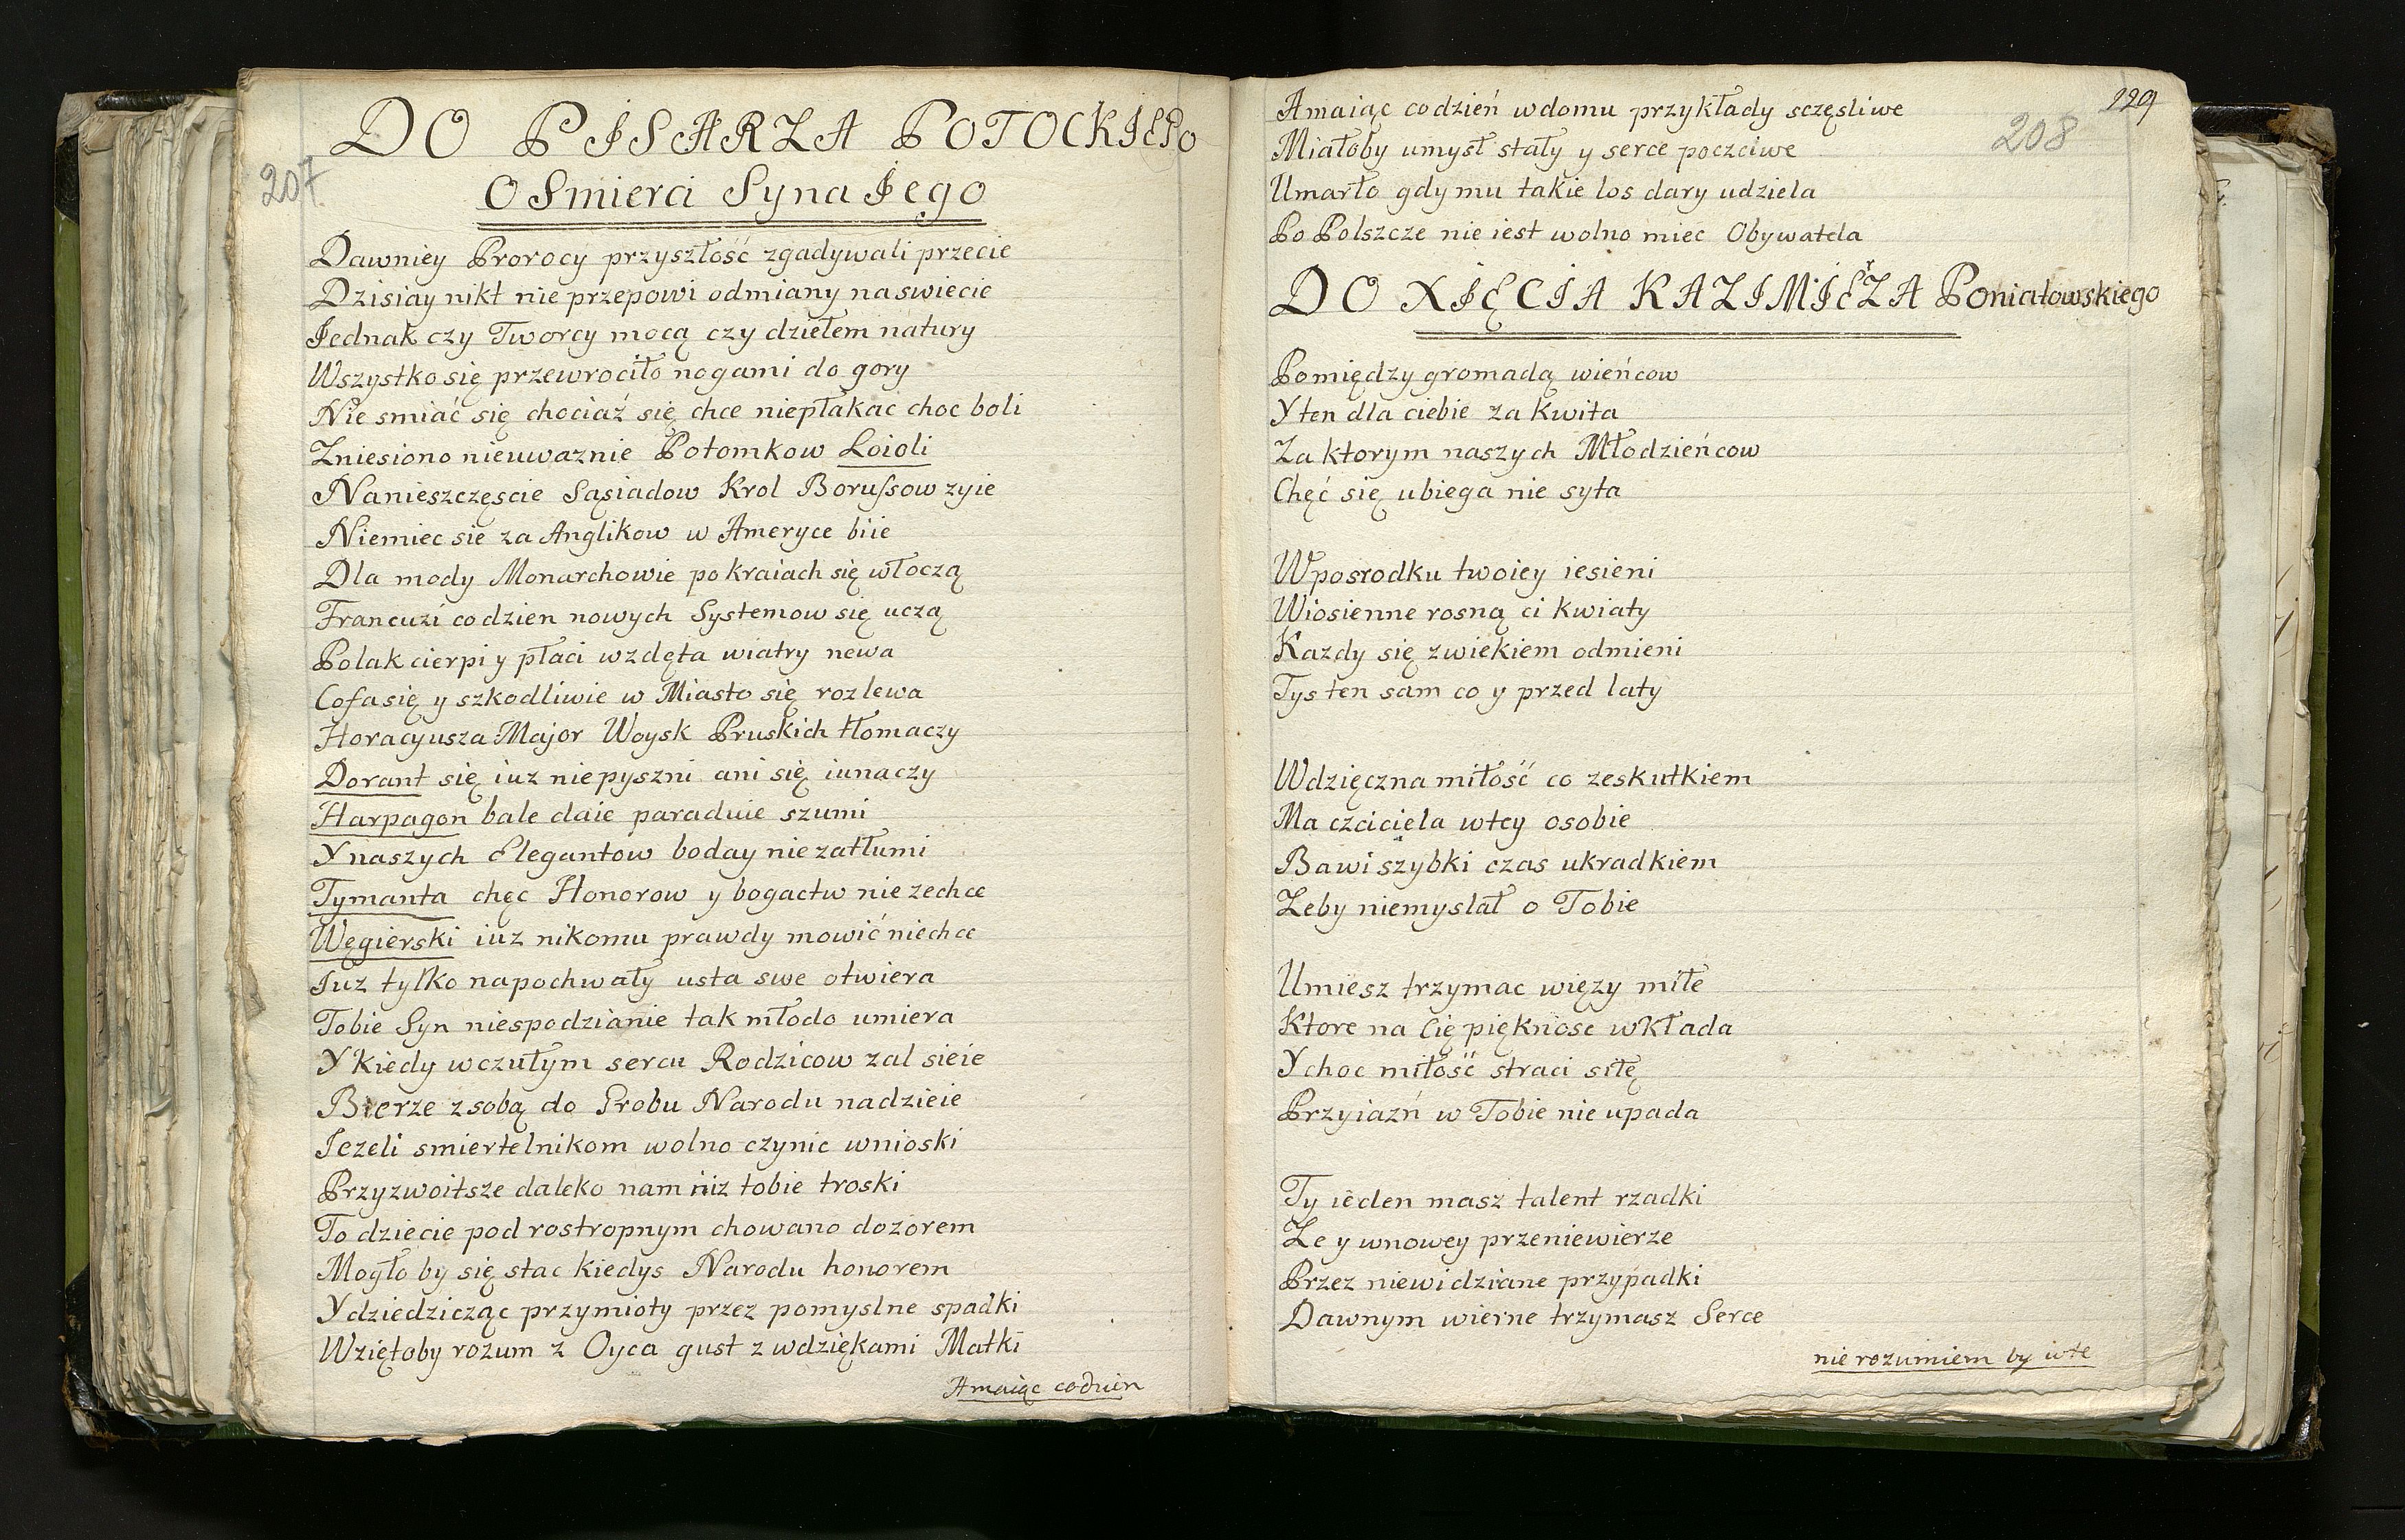 207.
DO PISARZA POTOCKIEGO
O Smierci Syna Jego
Dawniey Prorocy przyszłość zgadywali przecie
Dzisiay nikt nie przepowi odmiany na swiecie
Jednak czy Tworcy mocą czy dziełem natury
Wszystko się przewrociło nogami do gory
Nie smiać się chociaź się chce niepłakac choc boli
Zniesiono nieuwaznie Potomkow Loioli
Na nieszczęscie Sąsiadow Krol Borussow zyie
Niemiec sie za Anglikow w Ameryce biie
Dla mody Monarchowie po kraiach się włoczą
Francuzi co dzien nowych Systemow się uczą
Polak cierpi y płaci wzdęta wiatry newa
Cofa się y szkodliwie w Miasto się rozlewa
Horacyusza Major Woysk Pruskich tłomaczy
Dorant się iuz niepyszni ani się iunaczy
Harpagon bale daie paraduie szumi
Y naszych Elegantow boday nie zatłumi
Tymanta chęc Honorow y bogactw nie zechce
Węgierski iuz nikomu prawdy mowić niechce
Juz tylko na pochwały usta swe otwiera
Tobie Syn niespodzianie tak młodo umiera
Y kiedy w czułym sercu Rodzicow zal sieie
Bierze z sobą do Grobu Narodu nadzieie
Jezeli smiertelnikom wolno czynic wnioski
Przyzwoitsze daleko nam niz tobie troski
To dziecie pod rostropnym chowano dozorem
Mogło by się stac kiedys Narodu honorem
Y dziedzicząc przymioty przez pomyslne spadki
Wziętoby rozum z Oyca gust z wdziękami Matki
A maiąc codzien
129
208
A maiąc co dzień w domu przykłady sczęsliwe
Miałoby umysł stały y serce poczciwe
Umarło gdy mu takie los dary udziela
Bo Polszcze nie iest wolno miec Obywatela
DO XIĘCIA KAZIMIERZA Poniatowskiego
Pomiędzy gromadą wieńcow
Y ten dla ciebie za kwita
Za ktorym naszych Młodzieńcow
Chęć się ubiega nie syta
W posrodku twoiey iesieni
Wiosienne rosną ci kwiaty
Kazdy się z wiekiem odmieni
Tys ten sam co y przed laty
Wdzięczna miłość co ze skutkiem
Ma czciciela w tey osobie
Bawi szybki czas ukradkiem
Zeby niemyslał o Tobie
Umiesz trzymac więzy miłe
Ktore na Cię pięknosc wkłada
Y choc miłość straci siłę
Przyiazń w Tobie nie upada
Ty ieden masz talent rzadki
Ze y w nowey przeniewierze
Przez niewidziane przypadki
Dawnym wierne trzymasz Serce
nie rozumiem by w te